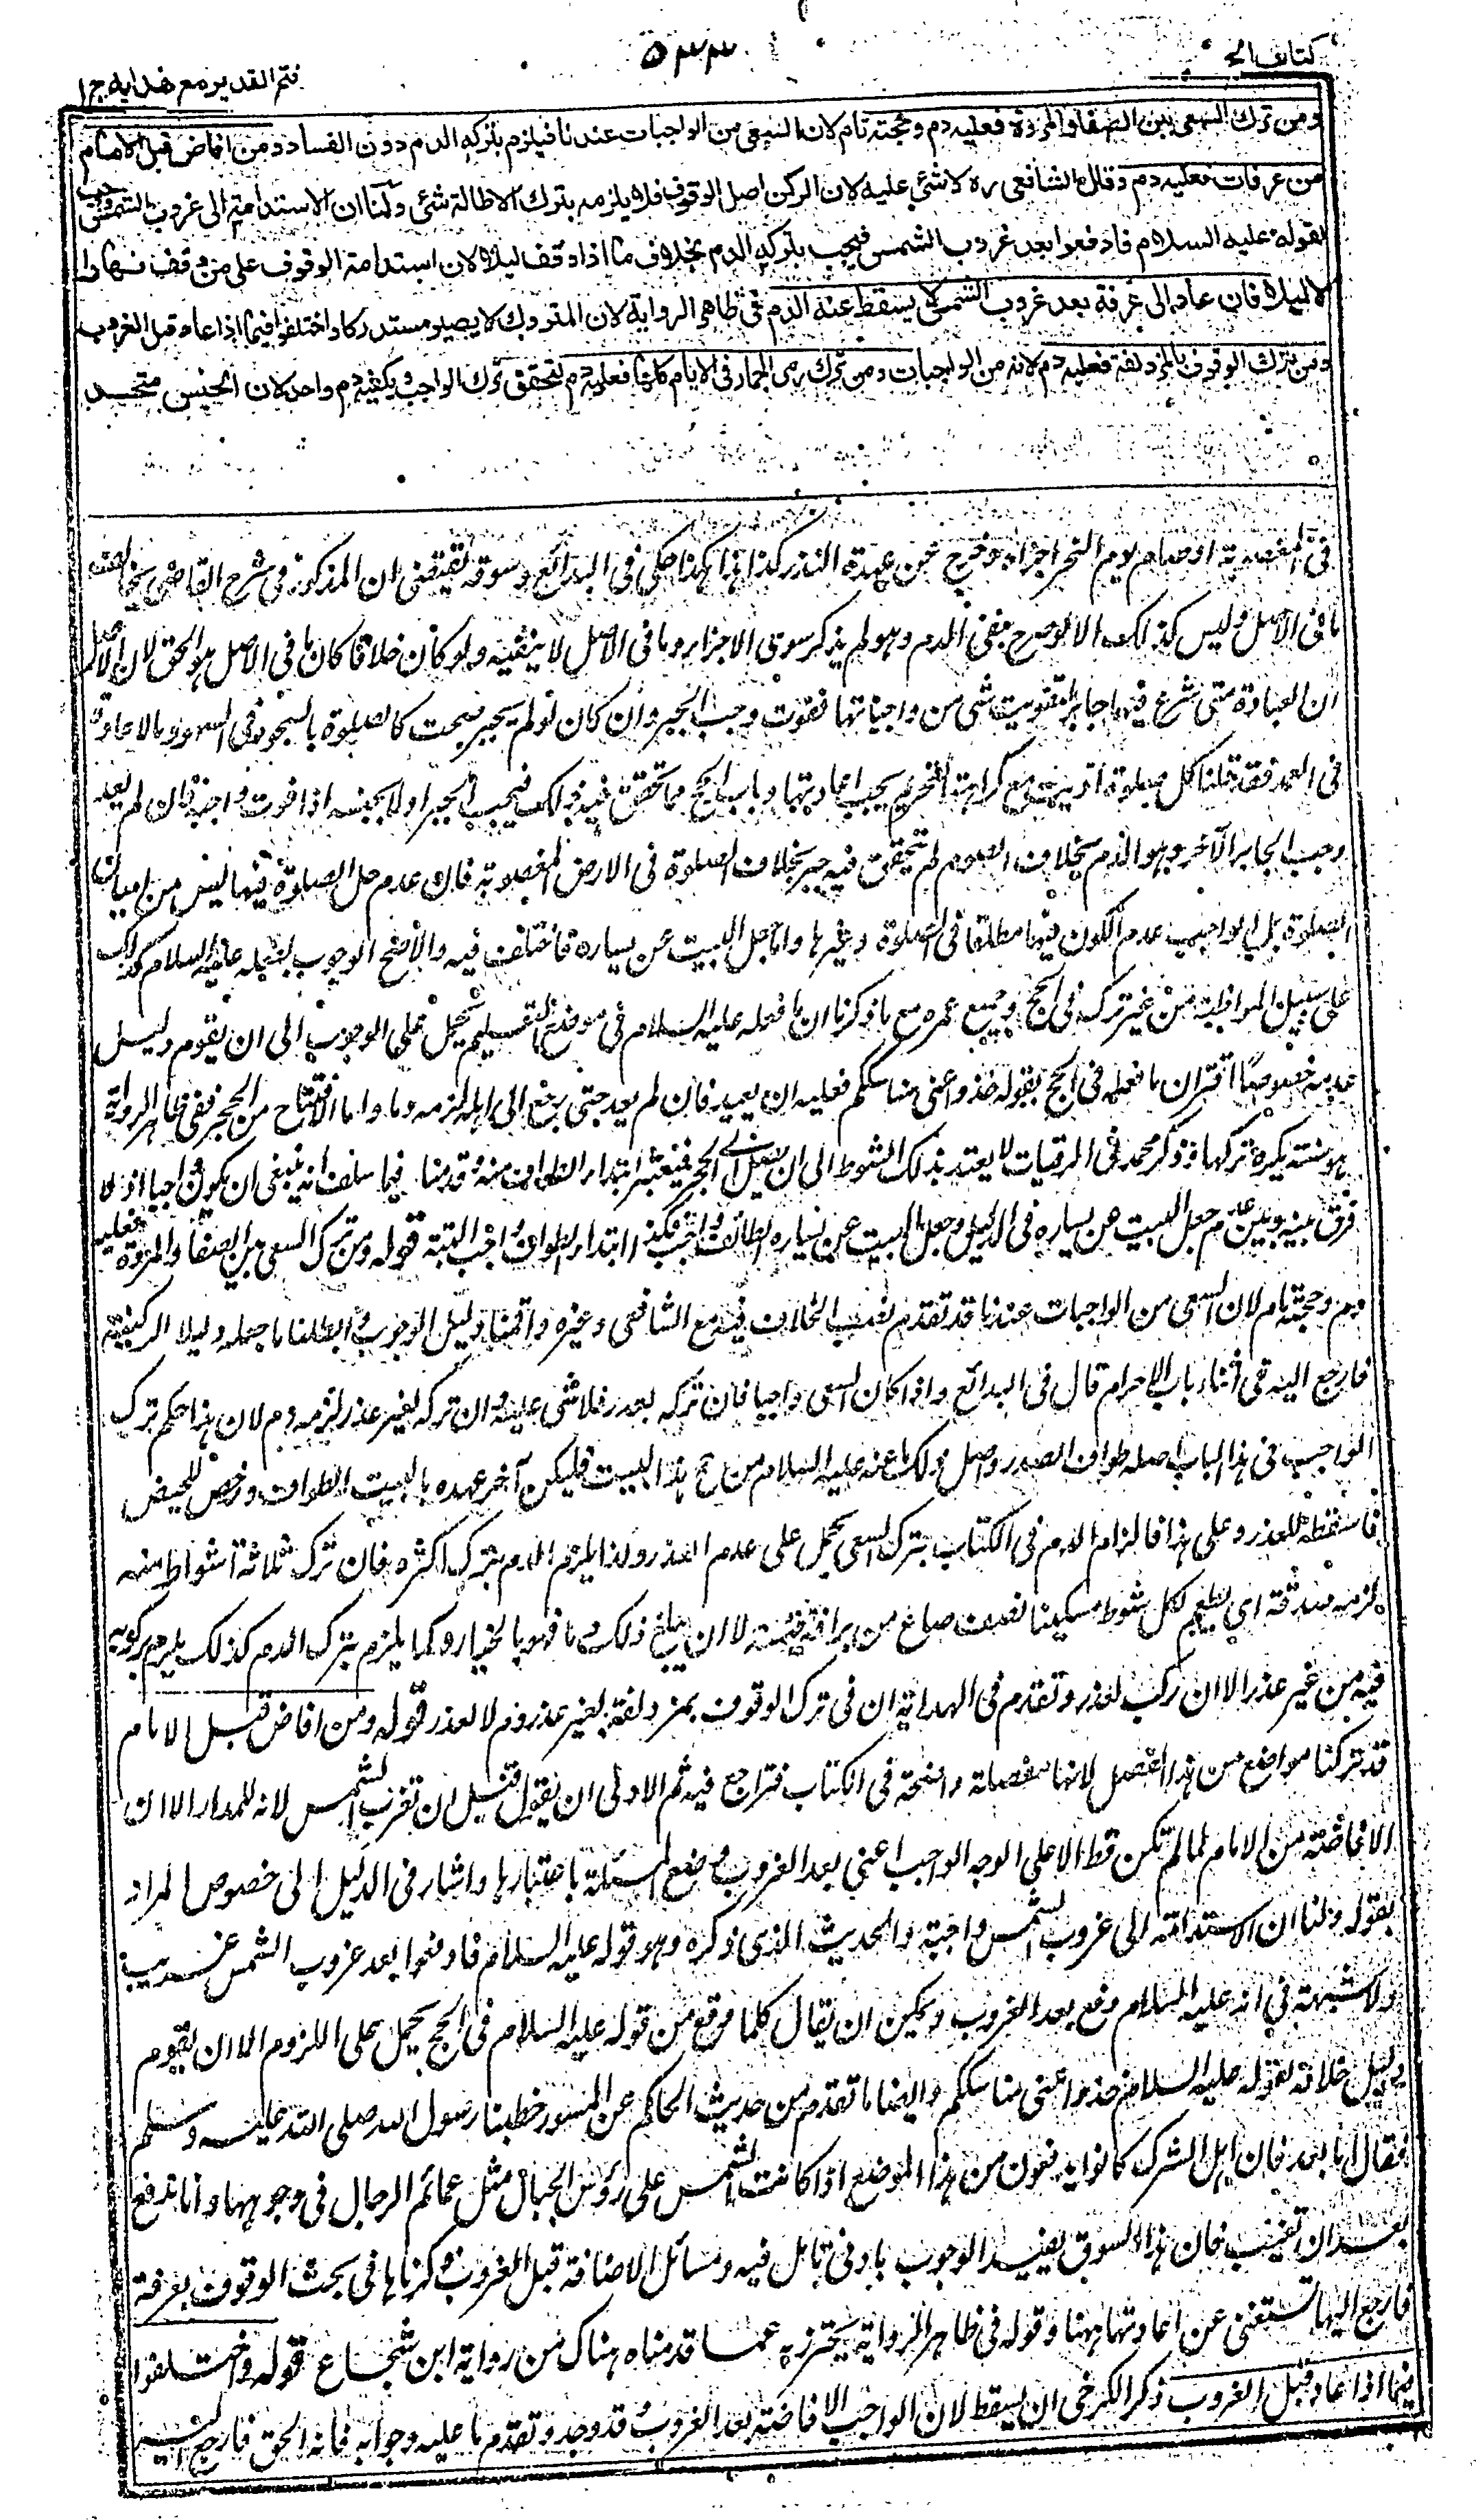 كتاب الحج
٥٣٣
فتح القدير مع هدايه ج ١
ومن ترك السعى بين الصفا والمروة فعليه دم وحجته تام لان السعى من الواجبات عندنا فيلزم بتركه الدم دون الفساد ومن افاض قبل الامام
من عرفات فعليه دم وقال الشافعى ره لا شئ عليه لان الركن اصل الوقوف فلا يلزمه بترك الاطالة شئ ولنا ان الاستدامة الى غروب الشمس واجب
لقوله عليه السلام فادفعوا بعد غروب الشمس فيجب بتركه الدم بخلاف ما اذا وقف ليلا لان استدامة الوقوف على من وقف نهارا
لا ليلا فان عاد الى عرفة بعد غروب الشمس لا يسقط عنه الدم فى ظاهر الرواية لان المتروك لا يصير مستدركا واختلفوا فيما اذا عاد قبل الغروب
ومن ترك الوقوف بالمزدلفة فعليه دم لانه من الواجبات ومن ترك رمى الجمار فى الايام كلها فعليه دم لتحقق ترك الواجب ويكفيه دم واحد لان الجنس متحد
فى المغصوبة او صام يوم النحر اجزاه وخرج عن عهدة النذر كذا هذا هكذا حكى فى البدائع وسوقه يقتضى ان المذكور فى شرح القاضى يخالف
ما فى الاصل وليس كذلك الا لو صرح بنفى الدم وهو لم يذكر سوى الاجزاء وما فى الاصل لا ينفيه ولو كان خلافا كان ما فى الاصل هو الحق لان الاصل
ان العبادة متى شرع فيها جابر لتفويت شئ من واجباتها ففوت وجب الجبر وان كان لو لم يجبر صحت كالصلوة بالسجود فى السهو وبالاعادة
فى العمد فقد قلنا كل صلوة اديت مع كراهة التحريم يجب اعادتها وباب الحج مما تحقق فيه ذلك فيجب الجبر اولا بجنسه اذا فوت واجبه فان لم يعد
وجب الجابر الآخر وهو الدم بخلاف الصوم لم يتحقق فيه جبر بخلاف الصلوة فى الارض المغصوبة فان عدم حل الصلوة فيها ليس من واجبات
الصلوة بل الواجب عدم الكون فيها مطلقا فى الصلوة وغيرها واما جعل البيت عن يساره فاختلف فيه والاصح الوجوب لفعله عليه السلام كذلك
على سبيل المواظبة من غير ترك فى الحج وجميع عمره مع ما ذكرنا ان ما فعله عليه السلام فى موضع التعليم يحمل على الوجوب الى ان يقوم دليل
عدمه خصوصا اقتران ما فعله فى الحج بقوله خذوا عنى مناسككم فعليه ان يعيد فان لم يعد حتى رجع الى اهله لزمه دم واما الافتتاح من الحجر ففى ظاهر الرواية
هو سنة يكره تركها وذكر محمد فى الرقيات لا يعتد بذلك الشوط الى ان يصل الى الحجر فيعتبر ابتداء الطواف منه وقدمنا فيما سلف انه ينبغى ان يكون واجبا اذ لا
فرق بينه وبين عدم جعل البيت عن يساره فى الدليل وجعل البيت عن يساره الطائف واجب فكذا ابتداء الطواف واجب البتة قوله ومن ترك السعى بين الصفا والمروة فعليه
دم وحجته تام لان السعى من الواجبات عندنا قد تقدم نصب الخلاف فيه مع الشافعى وغيره واقمنا دليل الوجوب وابطلنا ما جعله دليلا لركنيته
فارجع اليه فى اثناء باب الاحرام قال فى البدائع واذا كان السعى واجبا فان تركه بعذر فلا شئ عليه وان تركه لغير عذر لزمه دم لان هذا حكم ترك
الواجب فى هذا الباب اصله طواف الصدر واصل ذلك ما عنه عليه السلام من حج هذا البيت فليكن آخر عهده بالبيت الطواف ورخص للحيض
فاسقطه للعذر وعلى هذا فالزام الدم فى الكتاب بترك السعى يحمل على عدم العذر ولذا يلزم الدم بترك اكثره فان ترك ثلاثة اشواط منه
لزمه صدقة اى يطعم لكل شوط مسكينا نصف صاع من بر او قيمته لا ان يبلغ ذلك دما فهو بالخيار وكما يلزم بترك الدم كذلك يلزم بركوبه
فيه من غير عذر الا ان ركب لعذر وتقدم فى الهداية ان فى ترك الوقوف بمزدلفة لغير عذر دم لا لعذر قوله ومن افاض قبل الامام
قد تركنا مواضع من هذا الفصل لانها مفصلة واضحة فى الكتاب فتراجع فيه ثم الاولى ان يقول قبل ان تغرب الشمس لانه للمدار الا ان
الافاضة من الامام لما لم تكن قط الا على الوجه الواجب اعنى بعد الغروب وضع المسئلة باعتبارها واشار فى الدليل الى خصوص المراد
بقوله ولنا ان الاستدامة الى غروب الشمس واجبة والحديث الذى ذكره وهو قوله عليه السلام فادفعوا بعد غروب الشمس غريب
ولا شبهة فى انه عليه السلام دفع بعد الغروب ويمكن ان يقال كلما وقع من قوله عليه السلام فى الحج يحمل على اللزوم الا ان يقوم
دليل خلافه لقوله عليه السلام خذوا عنى مناسككم وايضا ما تقدم من حديث الحاكم عن المسور خطبنا رسول الله صلى الله عليه وسلم
فقال اما بعد فان اهل الشرك كانوا يدفعون من هذا الموضع اذا كانت الشمس على رؤس الجبال مثل عمائم الرجال فى وجوهها وانا ندفع
بعد ان تغيب فان هذا السوق يفيد الوجوب بادنى تامل فيه ومسائل الاضافة قبل الغروب ذكرناها فى بحث الوقوف بعرفة
فارجع اليها تستغنى عن اعادتها ههنا وقوله فى ظاهر الرواية يحترز به عما قدمناه هناك من رواية ابن شجاع قوله واختلفوا
فيما اذا عاد قبل الغروب ذكر الكرخى ان يسقط لان الواجب الافاضة بعد الغروب وقد وجد وتقدم ما عليه وجوابه فانه الحق فارجع اليه